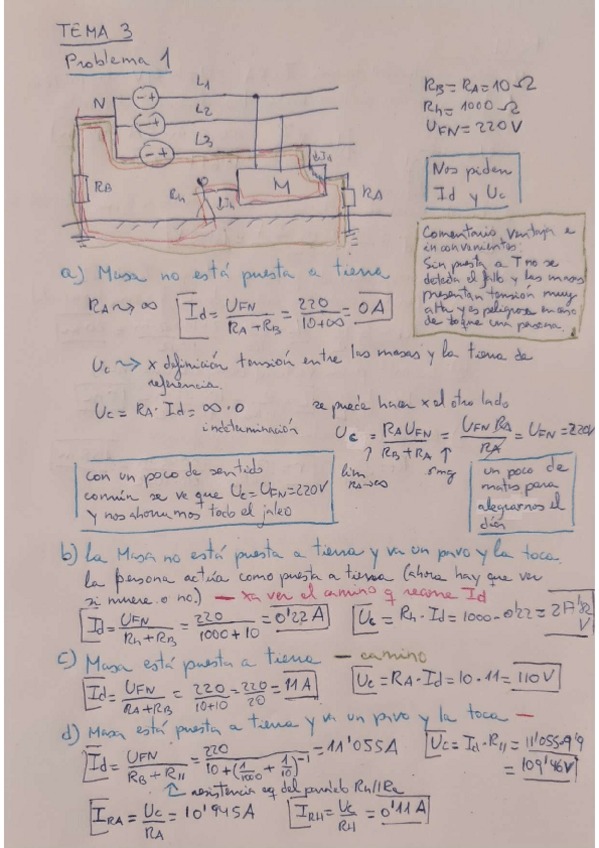 TEMA 3
Problema 1
L1
N
L2
L3
RB
Rh
Ih
Id
M
RA
RB = RA = 10 Ω
Rh = 1000 Ω
UFN = 220 V
Nos piden
Id y Uc
Comentario, ventaja e
inconvenientes:
Sin puesta a T no se
detecta el fallo y las masas
presentan tensión muy
alta y es peligroso en caso
de toque una persona.
a) Masa no está puesta a tierra
RA → ∞ Id = UFN / (RA + RB) = 220 / (10+∞) = 0 A
Uc → x definición tensión entre las masas y la tierra de
referencia.
Uc = RA · Id = ∞ · 0
indeterminación
se puede hacer x el otro lado
Uc = RA UFN / (RB + RA) = UFN RA / RA = UFN = 220V
lim RA→∞
con un poco de sentido
común se ve que Uc = UFN = 220V
y nos ahorramos todo el jaleo
un poco de
mates para
alegrarnos el
día
b) la Masa no está puesta a tierra y va un pavo y la toca.
la persona actúa como puesta a tierra (ahora hay que ver
si muere o no.) — xa ver el camino q recorre Id
Id = UFN / (Rh + RB) = 220 / (1000 + 10) = 0'22 A Uc = Rh · Id = 1000 · 0'22 = 217'82 V
c) Masa está puesta a tierra — camino
Id = UFN / (RA + RB) = 220 / (10+10) = 220 / 20 = 11 A Uc = RA · Id = 10 · 11 = 110 V
d) Masa está puesta a tierra y va un pavo y la toca —
Id = UFN / (RB + R//) = 220 / (10 + (1/1000 + 1/10)^-1) = 11'055 A Uc = Id · R// = 11'055 · 9'9
= 109'46 V
resistencia eq del paralelo Rh//RA
IRA = Uc / RA = 10'945 A IRH = Uc / RH = 0'11 A